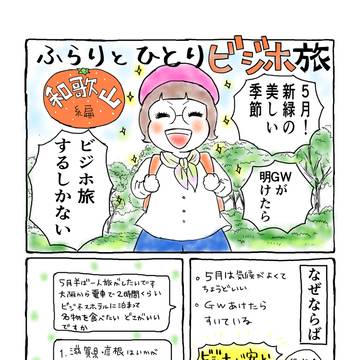 ふらりとひとりビジホ旅
和歌山
編
5月!
新緑の
美しい
季節
GWが
明けたら
ビジホ旅
するしかない
なぜならば
○5月は気候がよくて
ちょうどいい
○GWあけたら
すいている
5月半ば一人旅がしたいです
大阪から電車で2時間くらい
ビジネスホテルに泊まって
名物を食べたい どこがいい
ですか
1.滋賀県彦根はいかが